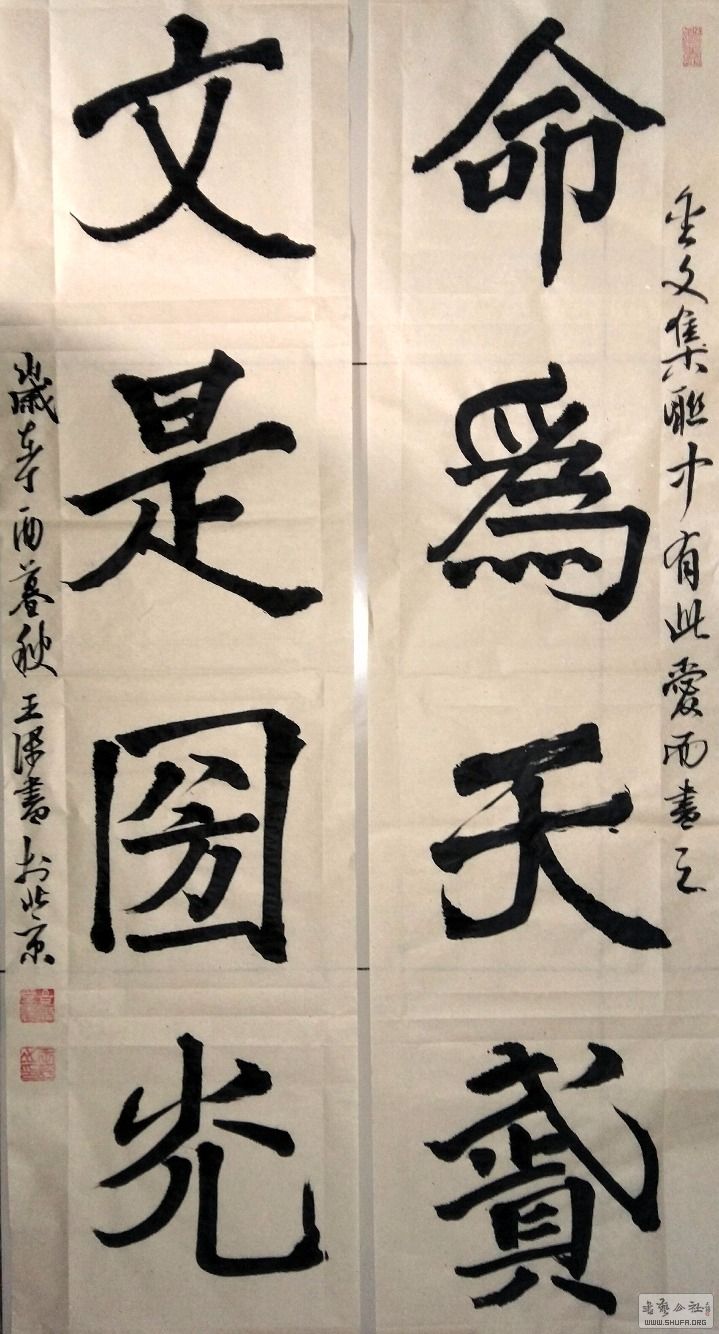 金文集聯中有此愛而書之
命為天賦
文是圀光
歲在丁酉暮秋王書於北京
書藝公社
WWW.SHUFA.ORG